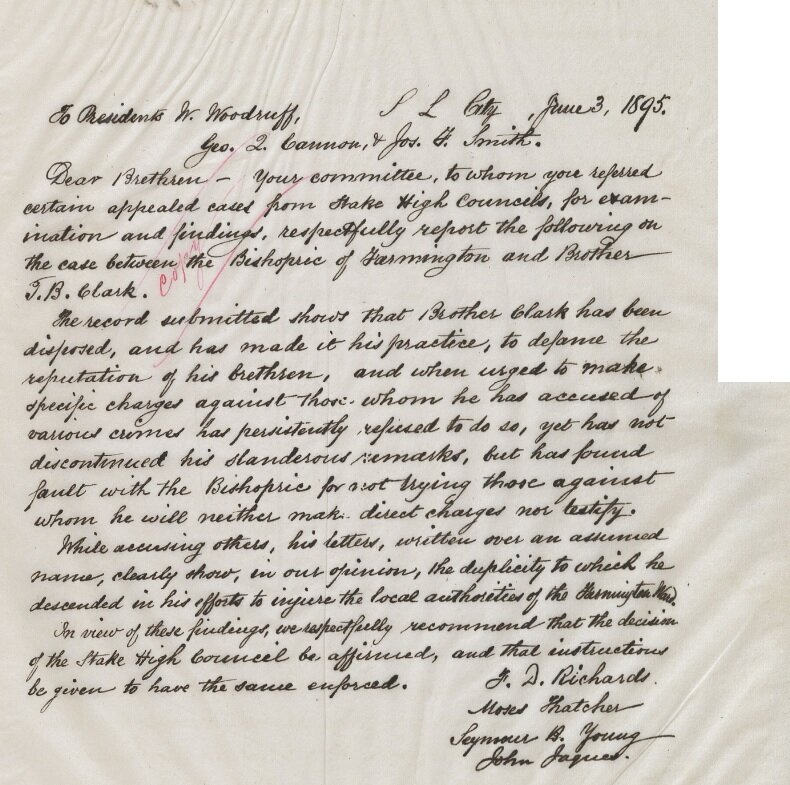 S L City, June 3, 1895.
To Presidents W. Woodruff,
Geo. Q. Cannon, & Jos. F. Smith.
Dear Brethren – Your committee, to whom you referred
certain appealed cases from Stake High Councils, for exam-
ination and findings, respectfully report the following on
the case between the Bishopric of Farmington and Brother
T. B. Clark.
copy
The record submitted shows that Brother Clark has been
disposed, and has made it his practice, to defame the
reputation of his brethren, and when urged to make
specific charges against those whom he has accused of
various crimes has persistently refused to do so, yet has not
discontinued his slanderous remarks, but has found
fault with the Bishopric for not trying those against
whom he will neither make direct charges nor testify.
While accusing others, his letters, written over an assumed
name, clearly show, in our opinion, the duplicity to which he
descended in his efforts to injure the local authorities of the Farmington Ward.
In view of these findings, we respectfully recommend that the decision
of the Stake High Council be affirmed, and that instructions
be given to have the same enforced.
F. D. Richards.
Moses Thatcher
Seymour B. Young
John Jaques.